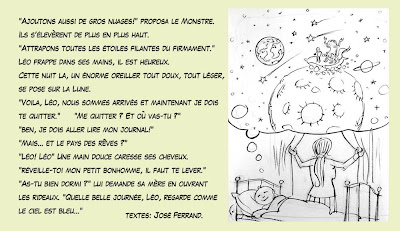 "Ajoutons aussi de gros nuages!" proposa le Monstre.
Ils s'élevèrent de plus en plus haut.
"Attrapons toutes les étoiles filantes du firmament."
Léo frappe dans ses mains, il est heureux.
Cette nuit la, un énorme oreiller tout doux, tout léger,
se pose sur la Lune.
"Voila, Léo, nous sommes arrivés et maintenant je dois
te quitter." "Me quitter ? Et où vas-tu ?"
"Ben, je dois aller lire mon journal!"
"Mais... et le pays des rêves ?"
"Léo! Léo" Une main douce caresse ses cheveux.
"Réveille-toi mon petit bonhomme, il faut te lever."
"As-tu bien dormi ?" lui demande sa mère en ouvrant
les rideaux. "Quelle belle journée, Léo, regarde comme
le ciel est bleu..."
textes: José Ferrand.